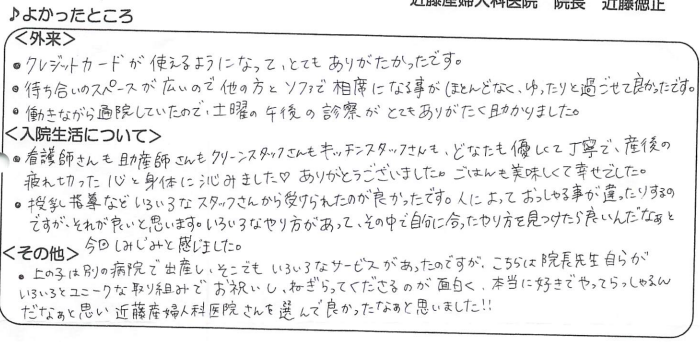 近藤産婦人科医院 院長 近藤徳正
♪よかったところ
<外来>
• クレジットカードが使えるようになって、とてもありがたかったです。
• 待ち合いのスペースが広いので他の方とソファで相席になる事がほとんどなく、ゆったりと過ごせて良かったです。
• 働きながら通院していたので、土曜の午後の診察がとてもありがたく助かりました。
<入院生活について>
• 看護師さんも助産師さんもクリーンスタッフさんもキッチンスタッフさんも、どなたも優しくて丁寧で、産後の
疲れ切った心と身体に沁みました♡ ありがとうございました。ごはんも美味しくて幸せでした。
• 授乳指導などいろいろなスタッフさんから受けられたのが良かったです。人によっておっしゃる事が違ったりするの
ですが、それが良いと思います。いろいろなやり方があって、その中で自分に合ったやり方を見つけたら良いんだなぁと
今回しみじみと感じました。
<その他>
• 上の子は別の病院で出産し、そこでもいろいろなサービスがあったのですが、こちらは院長先生自らが
いろいろとユニークな取り組みでお祝いし、ねぎらってくださるのが面白く、本当に好きでやってらっしゃるん
だなぁと思い近藤産婦人科医院さんを選んで良かったなぁと思いました!!